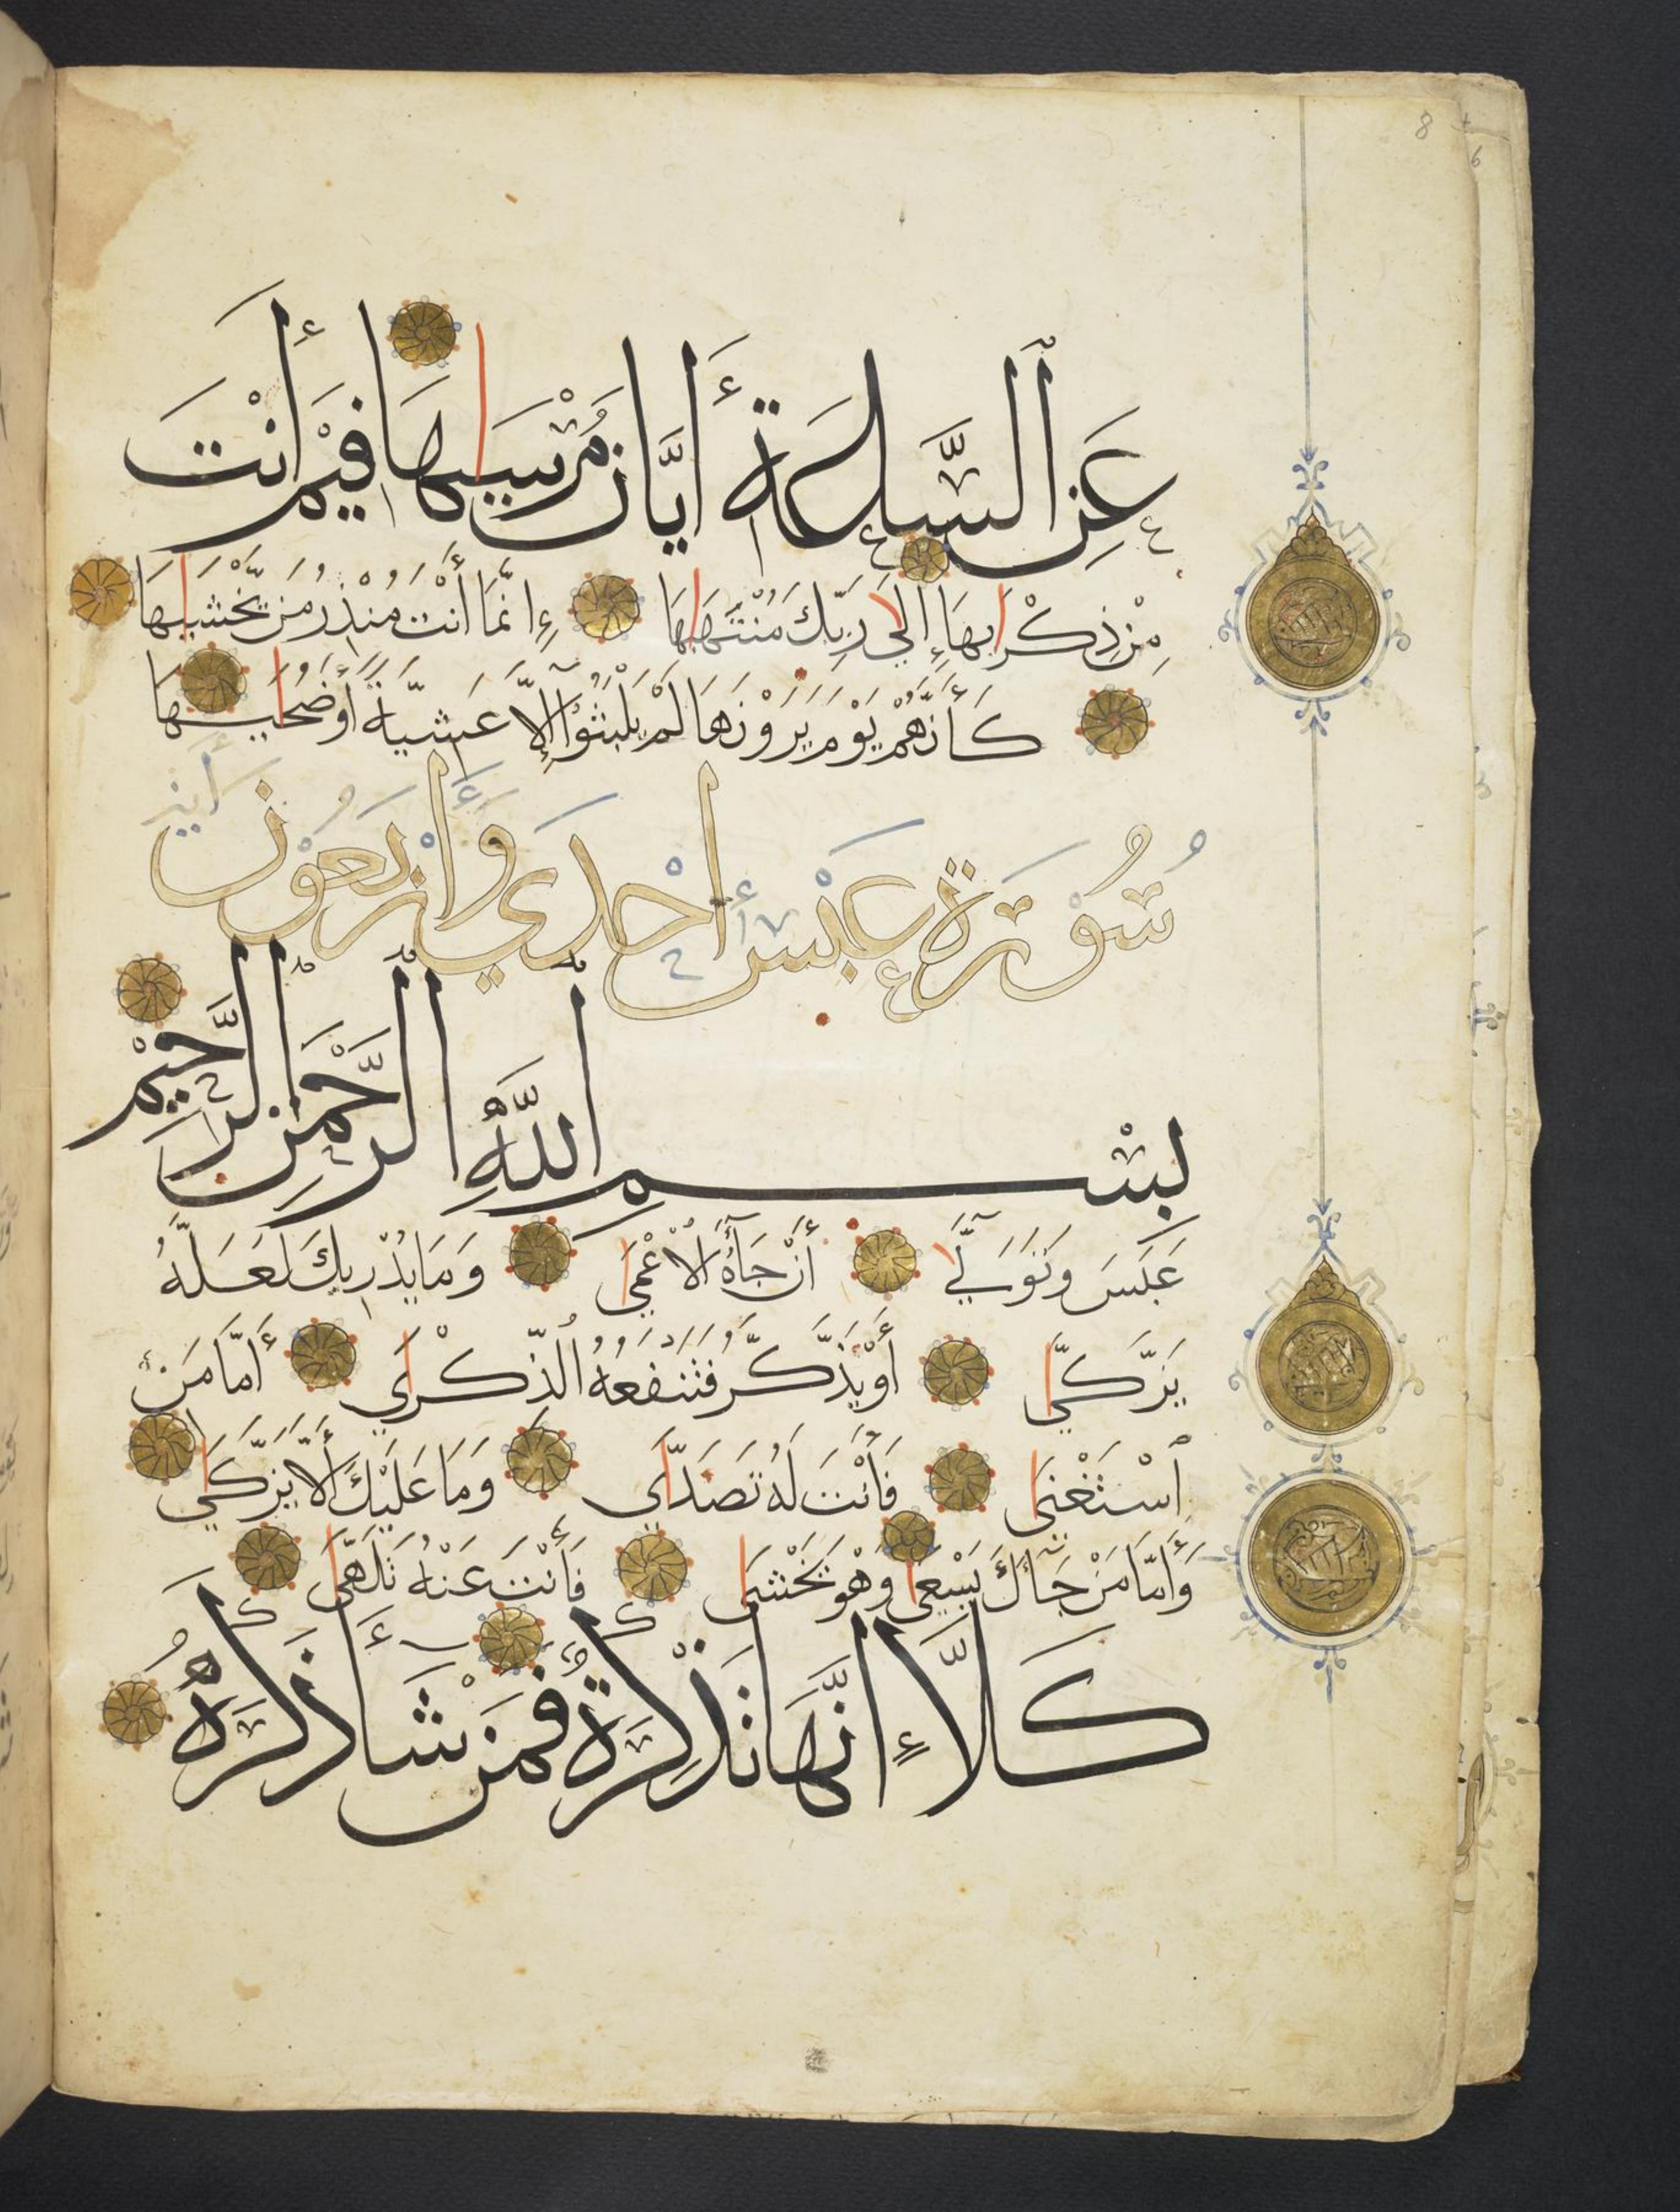 عَنِ ٱلسَّاعَةِ أَيَّانَ مُرْسَيٰهَا فِيْمَ أَنْتَ
مِنْ ذِكْرَىٰهَا إِلَىٰ رَبِّكَ مُنْتَهَىٰهَا إِنَّمَا أَنْتَ مُنْذِرُ مَنْ يَخْشَىٰهَا
كَأَنَّهُمْ يَوْمَ يَرَوْنَهَا لَمْ يَلْبَثُوْٓا إِلَّا عَشِيَّةً أَوْ ضُحَىٰهَا
سُوْرَةُ عَبَسَ إِحْدَى وَأَرْبَعُوْنَ آيَة
بِسْمِ ٱللَّهِ ٱلرَّحْمَٰنِ ٱلرَّحِيْمِ
عَبَسَ وَتَوَلَّىٰٓ أَنْ جَآءَهُ ٱلْأَعْمَىٰ وَمَا يُدْرِيكَ لَعَلَّهُ
يَزَّكَّىٰٓ أَوْ يَذَّكَّرُ فَتَنْفَعُهُ ٱلذِّكْرَىٰ أَمَّا مَنْ
ٱسْتَغْنَىٰ فَأَنْتَ لَهُ تَصَدَّىٰ وَمَا عَلَيْكَ أَلَّا يَزَّكَّىٰ
وَأَمَّا مَنْ جَآءَكَ يَسْعَىٰ وَهْوَ يَخْشَىٰ فَأَنْتَ عَنْهُ تَلَهَّىٰ
كَلَّآ إِنَّهَا تَذْكِرَةٌ فَمَنْ شَآءَ ذَكَرَهُ
8
6